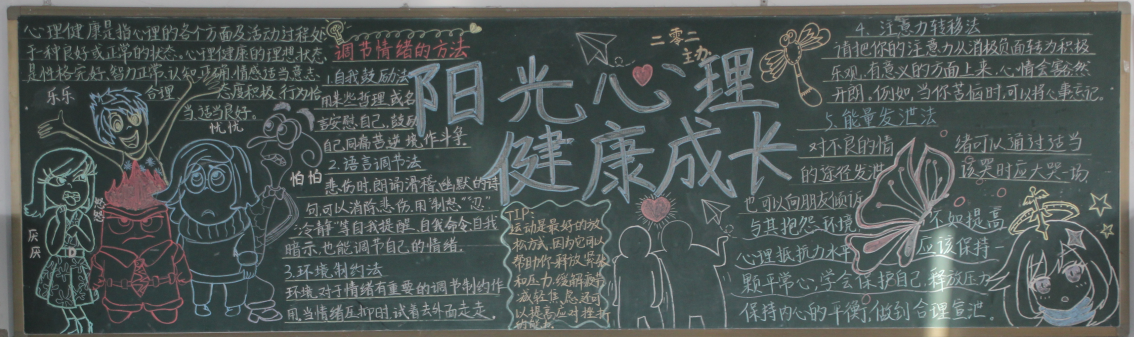 心理健康是指心理的各个方面及活动过程处
于一种良好或正常的状态。心理健康的理想状态
是性格完好、智力正常、认知正确、情感适当、意志
合理、态度积极、行为恰
当、适当良好。
乐乐
忧忧
怕怕
厌厌
调节情绪的方法
1.自我鼓励法
用某些哲理或名
言安慰自己,鼓励
自己同痛苦逆境作斗争
2.语言调节法
悲伤时朗诵滑稽、幽默的诗
句,可以消除悲伤,用"制怒""忍"
"冷静"等自我提醒、自我命令、自我
暗示,也能调节自己的情绪。
3.环境制约法
环境对于情绪有重要的调节制约作
用,当情绪压抑时,试着去外面走走。
阳光心理
健康成长
二零二
主办
TIP:
运动是最好的放
松方式,因为它可以
帮助你释放紧张
和压力,缓解疲劳
减轻焦虑,还可
以提高应对挫折
的能力
4.注意力转移法
请把你的注意力从消极负面转为积极
乐观、有意义的方面上来,心情会豁然
开朗,例如,当你苦恼时,可以将心事忘记。
5.能量发泄法
对不良的情 绪可以通过适当
的途径发泄 该哭时应大哭一场
也可以向朋友倾诉
与其抱怨环境 不如提高
心理抵抗力水平 应该保持一
颗平常心,学会保护自己,释放压力
保持内心的平衡,做到合理宣泄。